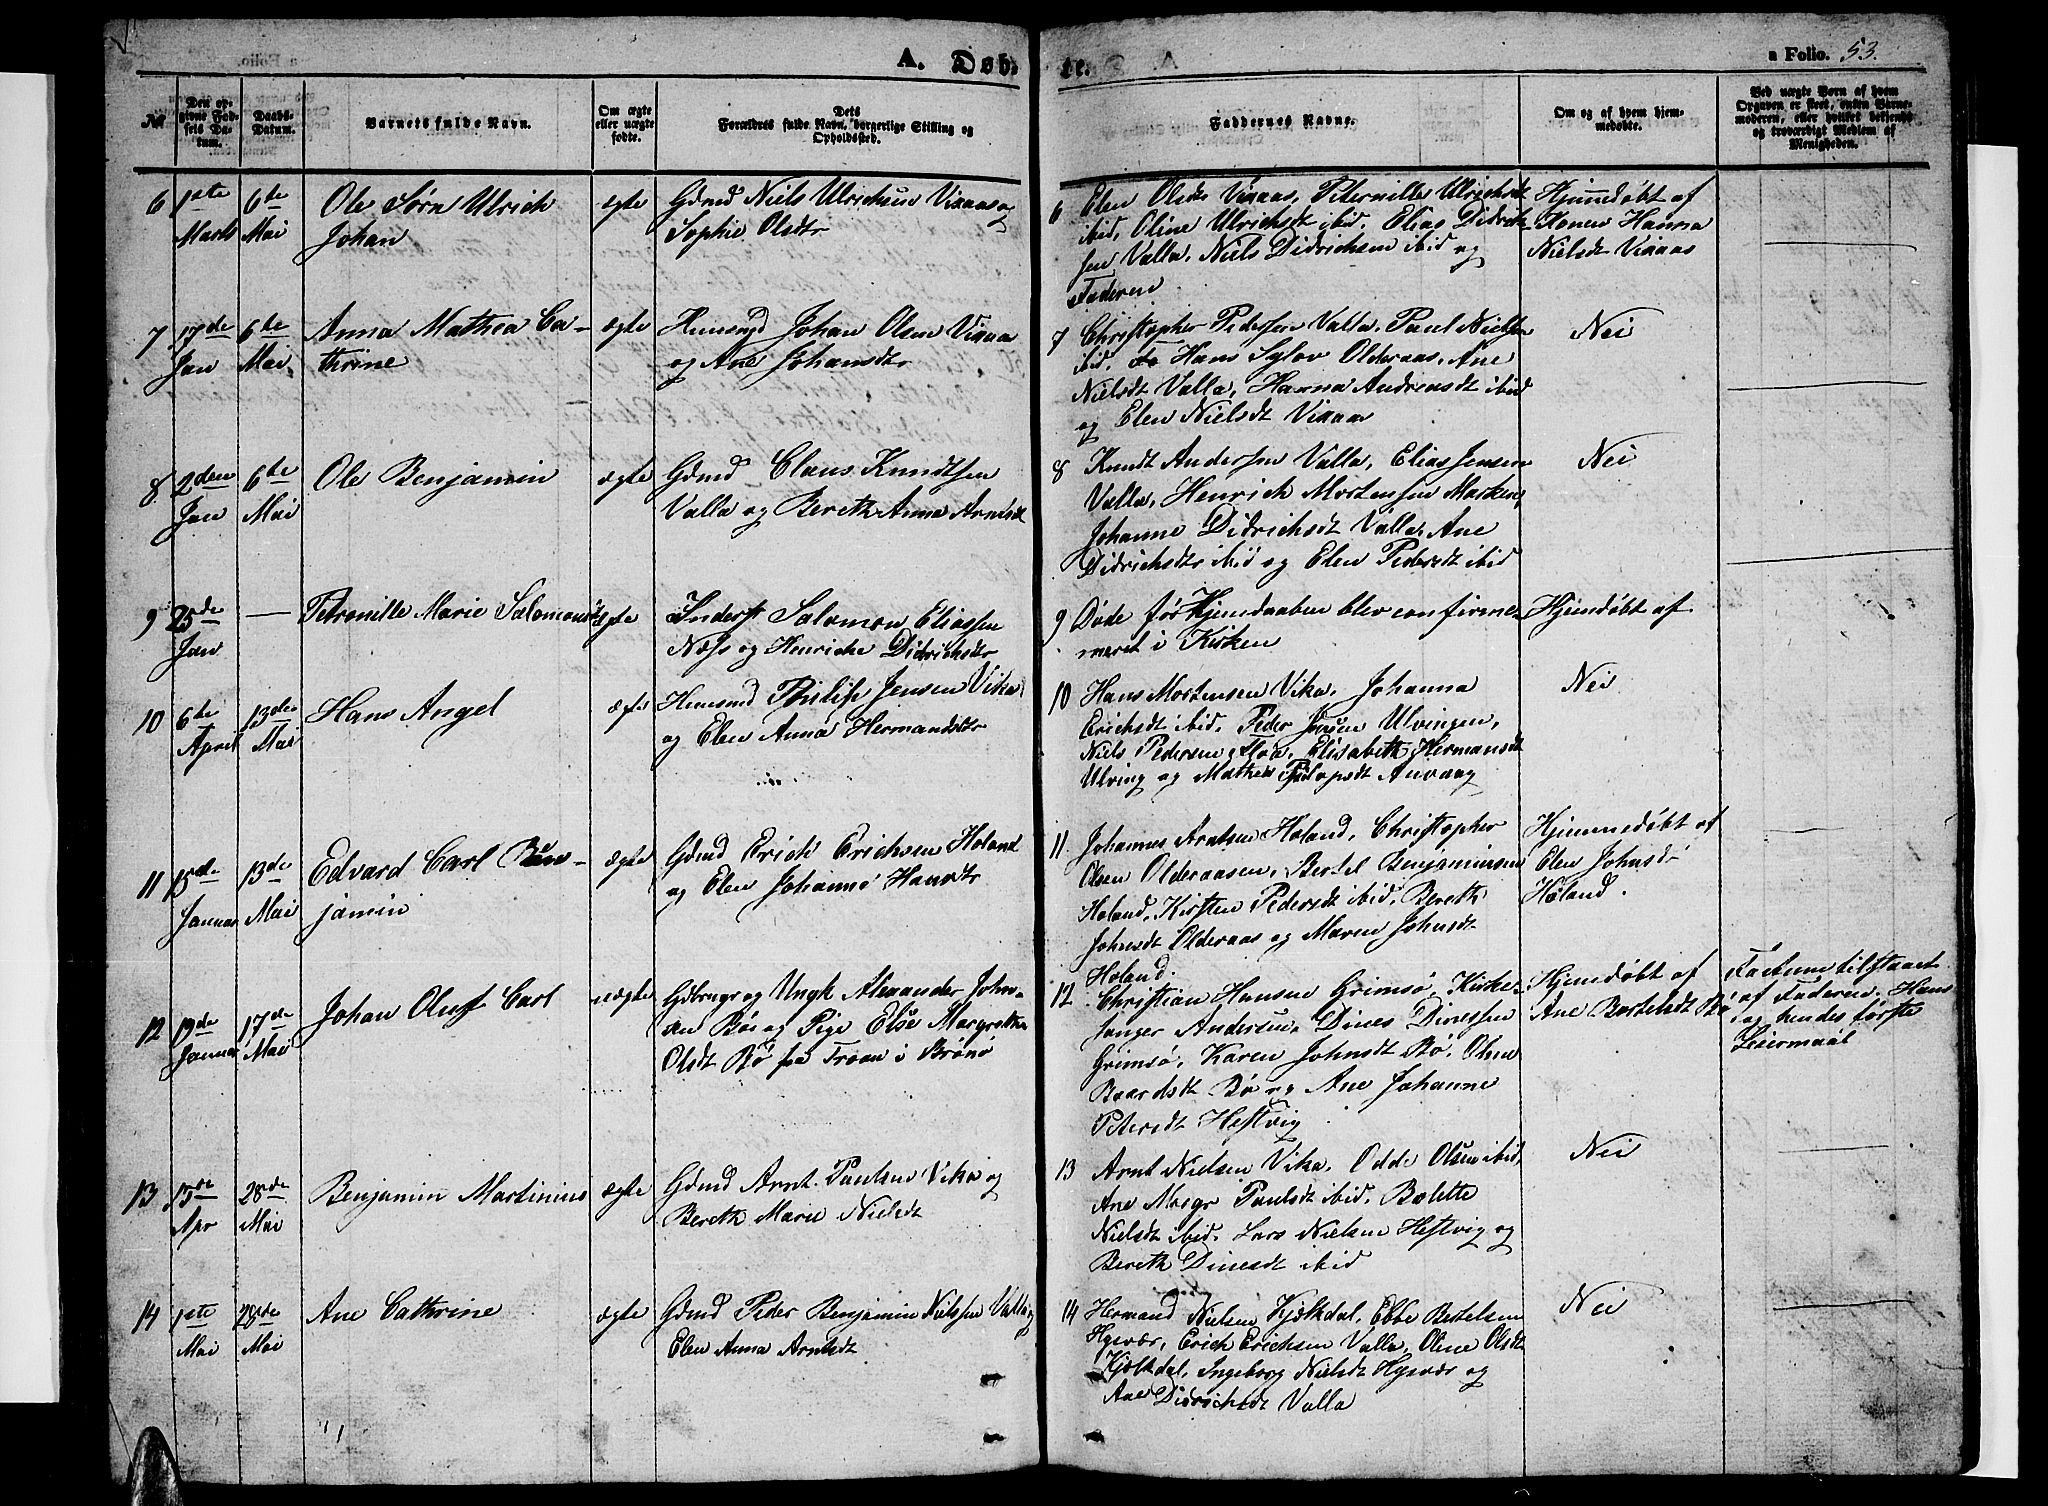 A. Døb-
te.
a Folio. 53.
No
Den op-
givne Fød-
sels Da-
tum.
Daabs-
Datum.
Barnets fulde Navn.
Om ægte
eller uægte
fødte.
Dets
Forældres fulde Navn, borgerlige Stilling og
Opholdssted.
Faddernes Navne.
Om og af hvem hjem-
medøbte.
Ved uægte Børn af hvem
Opgaven er skeet, enten Barne-
moderen, eller hvilket bekjendt
og troværdigt Medlem af
Menigheden.
6 1ste Marts
6te Mai
Ole Sørn Ulrich
Johan
ægte
Gdmd Niels Ulrichsen Viaas og
Sophie Olsdtr
6 Elen Olsdt Viaas, Peternille Ulrichsdt
ibid, Oline Ulrichsdt ibid. Elias Didrich-
sen Valla, Niels Didrichsen ibid og
Faderen
Hjemmedøbt af
Konen Hanna
Nielsdt Viaas
7 17de Jan
6te Mai
Anna Mathea Ca-
thrine
ægte
Huusmd Johan Olsen Viaas
og Ane Johansdtr
7 Christopher Pedersen Valla, Paul Nielsen
ibid. Hans Sylov Olderaas, Ane
Nielsdt Valla, Hanna Andreasdt ibid
og Elen Nielsdt Viaas
Nei
8 2den Jan
6te Mai
Ole Benjamin
ægte
Gdmd Claus Knudtsen
Valla og Bereth Anna Arntsdt
8 Knudt Andersen Valla, Elias Jensen
Valla, Henrich Mortensen
Johanne Didrichsdt Valla, Ane
Didrichsdtr ibid og Elen Pedersdt ibid
Nei
9 25de Jan
—
Petronille Marie Salomonsdt
ægte
Inderst Salomon Eliassen
Næss og Henricke Didrichsdtr
9 Døde før Hjemdaaben blev confirme-
meret i Kirken
Hjemdøbt af
10 6te April
13de Mai
Hans Angel
ægte
Huusmd Philip Jensen Vika
og Elen Anna Hermandsdtr
10 Hans Mortensen Vika, Johanna
Erichsdt ibid, Peder Jensen Ulvingen,
Niels Pedersen Floa, Elisabeth Hermansdt
Ulving og Mathea Filopsdt
Nei
11 15de Januar
13de Mai
Edvard Carl Ben-
jamin
ægte
Gdmd Erich Erichsen Høland
og Elen Johanna Hansdtr
11. Johannes Arntsen Høland, Christopher
Olsen Olderaasen, Bertel Benjaminsen
Høland, Kirsten Pedersdt ibid, Bereth
Johnsdt Olderaas og Maren Johnsdt
Høland.
Hjemmedøbt af
Elen Johnsdt
Høland.
12 19de Januar
17de Mai
Johan Oluf Carl
uægte
Gdbrugr og Ungk Alexander John-
sen Bø og Pige Else Margrethe
Olsdt Bø fra Troen i Brønø
12 Christian Hansen Grimsø, Kirke-
sanger Andersen, Dines Dinessen
Grimsø, Karen Johnsdt Bø, Olena
Baardsdt Bø og Ane Johanne
Petersdt Hestvig
Hjemdøbt af
Ane Bertelsdt Bø
Factum tilstaaet
af Faderen. Hans
og hendes første
Leiermaal
13 15de Apr
28de Mai
Benjamin Martinius
ægte
Gdmd Arnt Paulsen Vika og
Bereth Marie Nielsdt
13 Arnt Nielsen Vika, Odde Olsen ibid,
Ane Margr Paulsdt ibid. Bolette
Nielsdt ibid. Lars Nielsen Hestvig og
Bereth Dinesdt ibid
Nei
14 1ste Mai
28de Mai
Ane Cathrine
ægte
Gdmd Peder Benjamin Nielsen Valla og
Elen Anna Arntsdt
14 Hermand Nielsen Kjelkdal, Ebbe Bertelsen
Hysvær, Erich Erichsen Valla, Oline Olsdt
Kjelkdal, Ingeborg Nielsdt Hysvær og
Ane Didrichsdt Valla
Nei